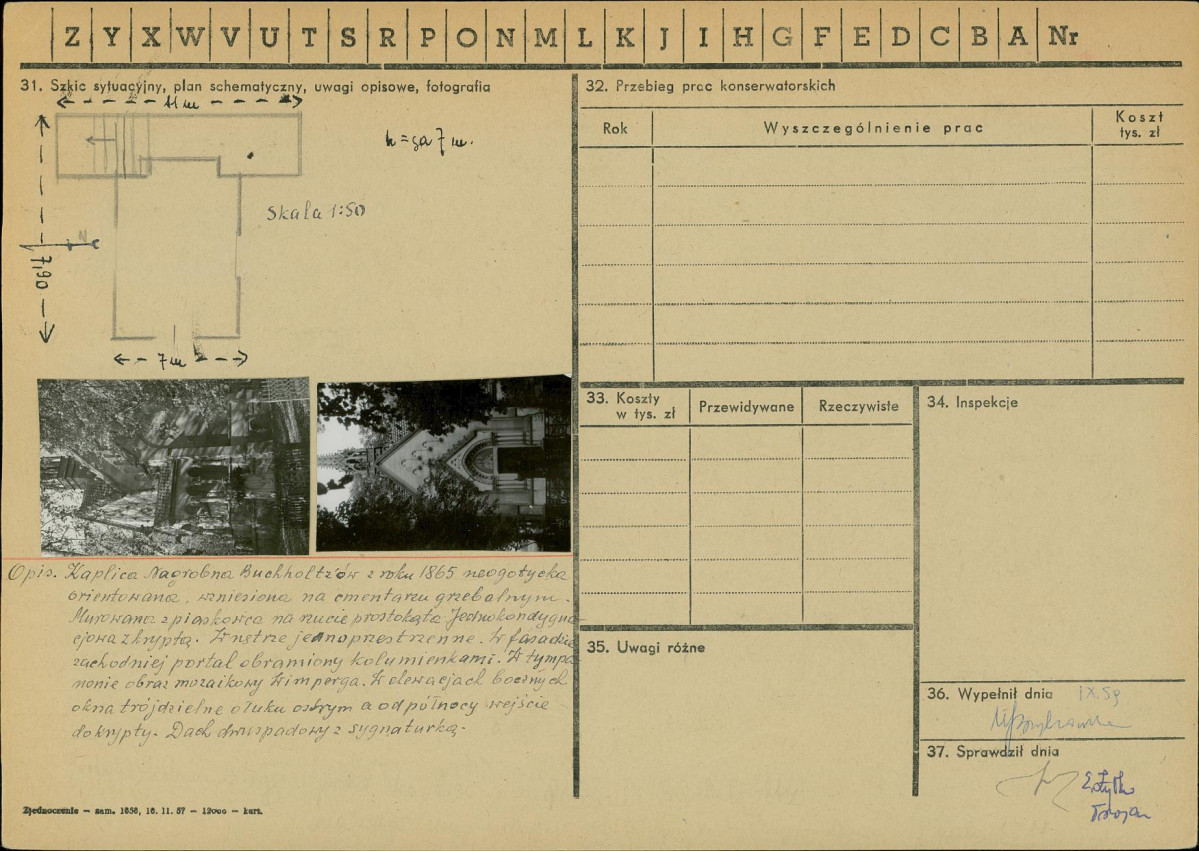 Z Y X W V U T S R P O N M L K J I H G F E D C B A Nr
31. Szkic sytuacyjny, plan schematyczny, uwagi opisowe, fotografia
11 m
h = ca 7 m.
Skala 1:50
N
7,90
7 m
Opis. Kaplica Nagrobna Buchholtz'ów z roku 1865 neogotycka
orientowana, wzniesiona na cmentarzu grzebalnym.
Murowana z piaskowca na rzucie prostokąta Jednokondygna-
cjowa z kryptą. Wnętrze jednoprzestrzenne. W fasadzie
zachodniej portal obramiony kolumienkami. W tympa-
nonie obraz mozaikowy Wimperga. W elewacjach bocznych
okna trójdzielne o łuku ostrym a od północy wejście
do krypty. Dach dwuspadowy z sygnaturką.
Zjednoczenie — zam. 1858, 16. 11. 57 — 12000 — kart.
32. Przebieg prac konserwatorskich
Rok
Wyszczególnienie prac
Koszt
tys. zł
33. Koszty
w tys. zł
Przewidywane
Rzeczywiste
34. Inspekcje
35. Uwagi różne
36. Wypełnił dnia IX.59
37. Sprawdził dnia